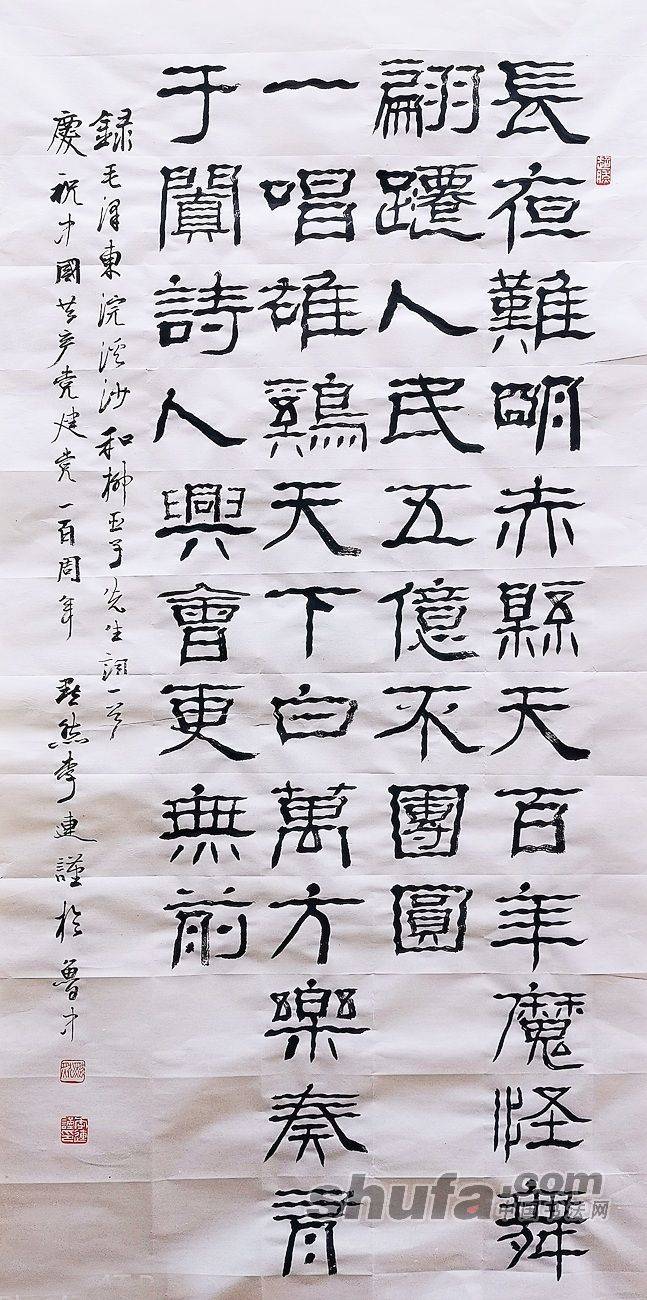 長夜難明赤縣天百年魔怪舞
翩躚人民五億不團圓
一唱雄鷄天下白萬方樂奏有
于闐詩人興會更無前
録毛澤東浣溪沙和柳亞子先生詞一首
慶祝中國共产党建党一百周年 然李建謹於魯中
shufa.com
中国书法网